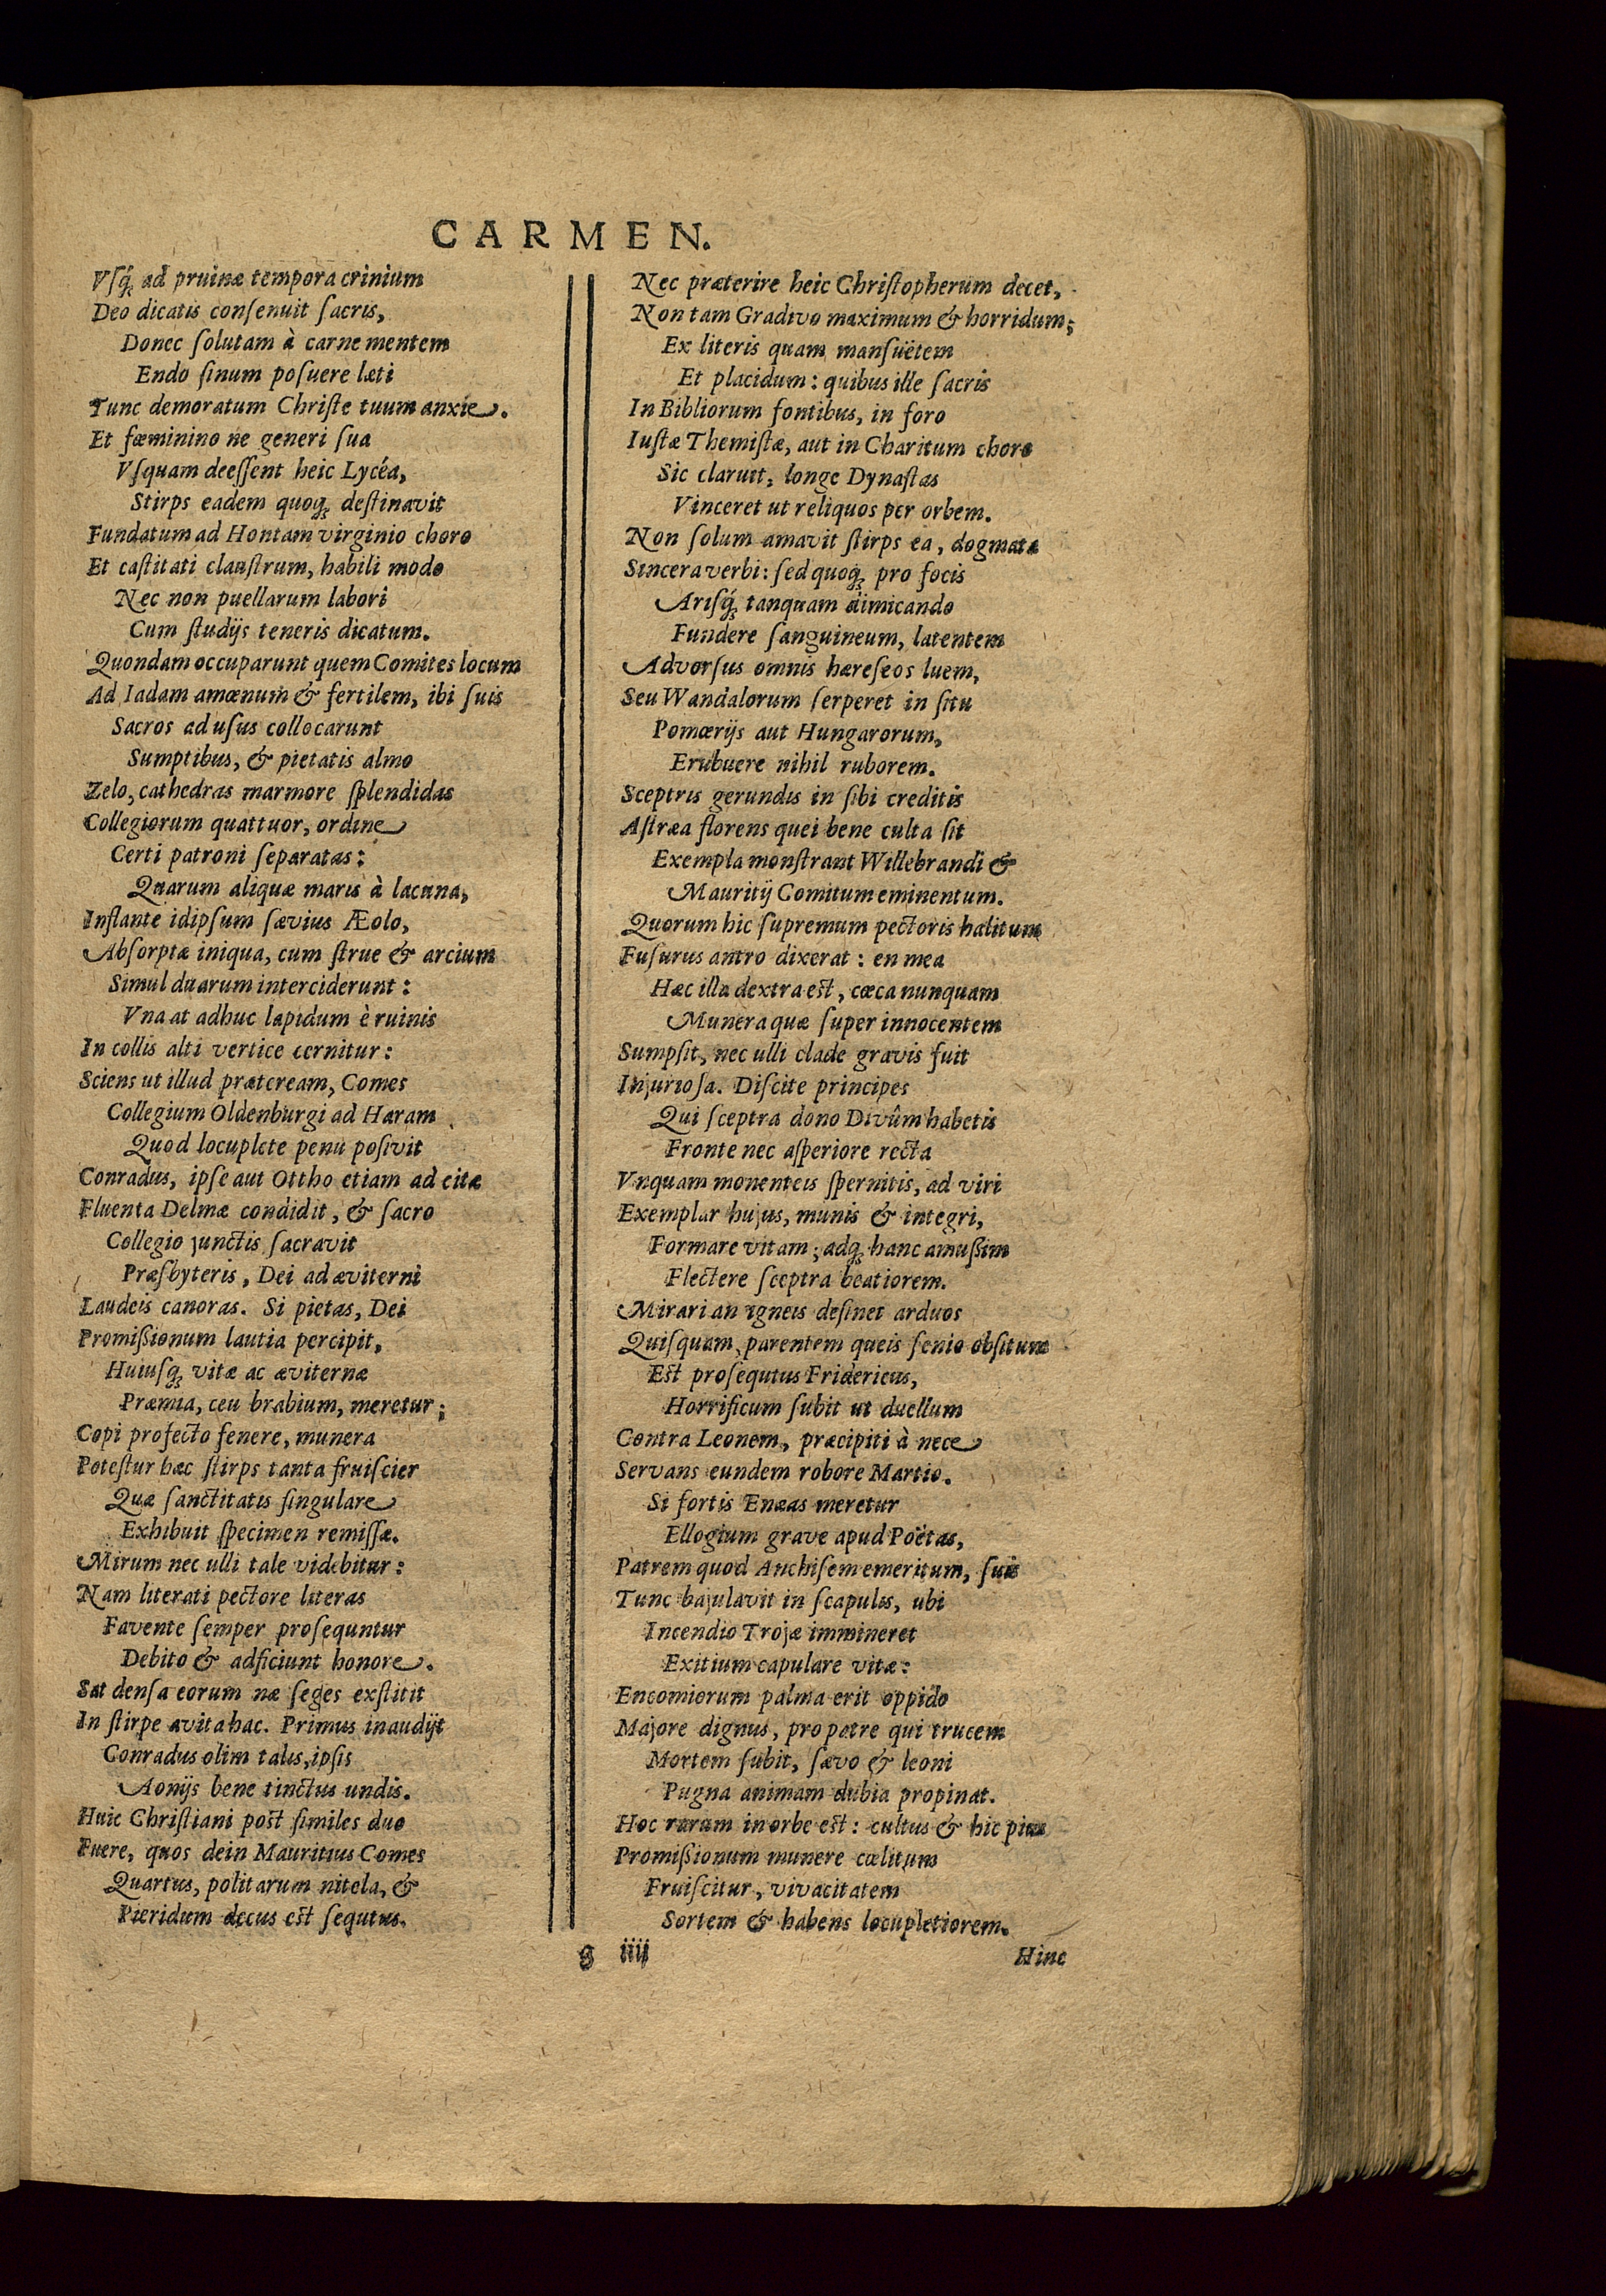 CARMEN.
Vſq́ꝫ ad pruinæ tempora crinium
Deo dicatis conſenuit ſacris,
Donec ſolutam à carne mentem
Endo ſinum poſuere læti
Tunc demoratum Chriſte tuum anxie.
Et fœminino ne generi ſua
Vſquam deeſſent heic Lycéa,
Stirps eadem quoqꝫ deſtinavit
Fundatum ad Hontam virginio choro
Et caſtitati clauſtrum, habili modo
Nec non puellarum labori
Cum ſtudijs teneris dicatum.
Quondam occuparunt quem Comites locum
Ad Iadam amœnum & fertilem, ibi ſuis
Sacros ad uſus collocarunt
Sumptibus, & pietatis almo
Zelo, cathedras marmore ſplendidas
Collegiorum quattuor, ordine
Certi patroni ſeparatas:
Quarum aliquæ maris à lacuna,
Inflante idipſum ſævius Æolo,
Abſorptæ iniqua, cum ſtrue & arcium
Simul duarum interciderunt:
Vna at adhuc lapidum è ruinis
In collis alti vertice cernitur:
Sciens ut illud prætcream, Comes
Collegium Oldenburgi ad Haram
Quod locuplete penu poſivit
Conradus, ipſe aut Ottho etiam ad citæ
Fluenta Delmæ condidit, & ſacro
Collegio junctis ſacravit
Præſbyteris, Dei ad æviterni
Laudeis canoras. Si pietas, Dei
Promißionum lautia percipit,
Huiuſqꝫ vitæ ac æviternæ
Præmia, ceu brabium, meretur;
Copi profecto fenere, munera
Poteſtur hæc ſtirps tanta fruiſcier
Quæ ſanctitatis ſingulare
Exhibuit ſpecimen remiſſæ.
Mirum nec ulli tale videbitur:
Nam literati pectore literas
Favente ſemper proſequntur
Debito & adficiunt honore.
Sat denſa eorum næ ſeges exſtitit
In ſtirpe avita hac. Primus inaudijt
Conradus olim talis, ipſis
Aonijs bene tinctus undis.
Huic Chriſtiani poſt ſimiles duo
Fuere, quos dein Mauritius Comes
Quartus, politarum nitela, &
Pieridum decus eſt ſequtus.
Nec præterire heic Chriſtopherum decet,
Non tam Gradivo maximum & horridum;
Ex literis quam manſuëtem
Et placidum: quibus ille ſacris
In Bibliorum fontibus, in foro
Iuſtæ Themiſtæ, aut in Charitum choro
Sic claruit, longe Dynaſtas
Vinceret ut reliquos per orbem.
Non ſolum amavit ſtirps ea, dogmata
Sincera verbi: ſed quoqꝫ pro focis
Ariſq́ꝫ tanquam dimicando
Fundere ſanguineum, latentem
Adverſus omnis hæreſeos luem,
Seu Wandalorum ſerperet in ſitu
Pomœrijs aut Hungarorum,
Erubuere nihil ruborem.
Sceptris gerundis in ſibi creditis
Aſtræa florens quei bene culta ſit
Exempla monſtrant Willebrandi &
Mauritij Comitum eminentum.
Quorum hic ſupremum pectoris halitum
Fuſurus antro dixerat: en mea
Hæc illa dextra eſt, cæca nunquam
Munera quæ ſuper innocentem
Sumpſit, nec ulli clade gravis fuit
Injurioſa. Diſcite principes
Qui ſceptra dono Divûm habetis
Fronte nec aſperiore recta
Vnquam monenteis ſpernitis, ad viri
Exemplar hujus, munis & integri,
Formare vitam; adqꝫ hanc amußim
Flectere ſceptra beatiorem.
Mirari an igneis deſinet arduos
Quiſquam, parentem queis ſenio obſitum
Eſt proſequtus Fridericus,
Horrificum ſubit ut duellum
Contra Leonem, præcipiti à nece
Servans eundem robore Martio.
Si fortis Enæas meretur
Ellogium grave apud Poëtas,
Patrem quod Anchiſem emeritum, ſuis
Tunc bajulavit in ſcapulis, ubi
Incendio Trojæ immineret
Exitium capulare vitæ:
Encomiorum palma erit oppido
Majore dignus, pro patre qui trucem
Mortem ſubit, ſævo & leoni
Pugna animam dubia propinat.
Hoc rarum in orbe eſt: cultus & hic pius
Promißionum munere cœlitum
Fruiſcitur, vivacitatem
Sortem & habens locupletiorem.
g iiij
Hinc